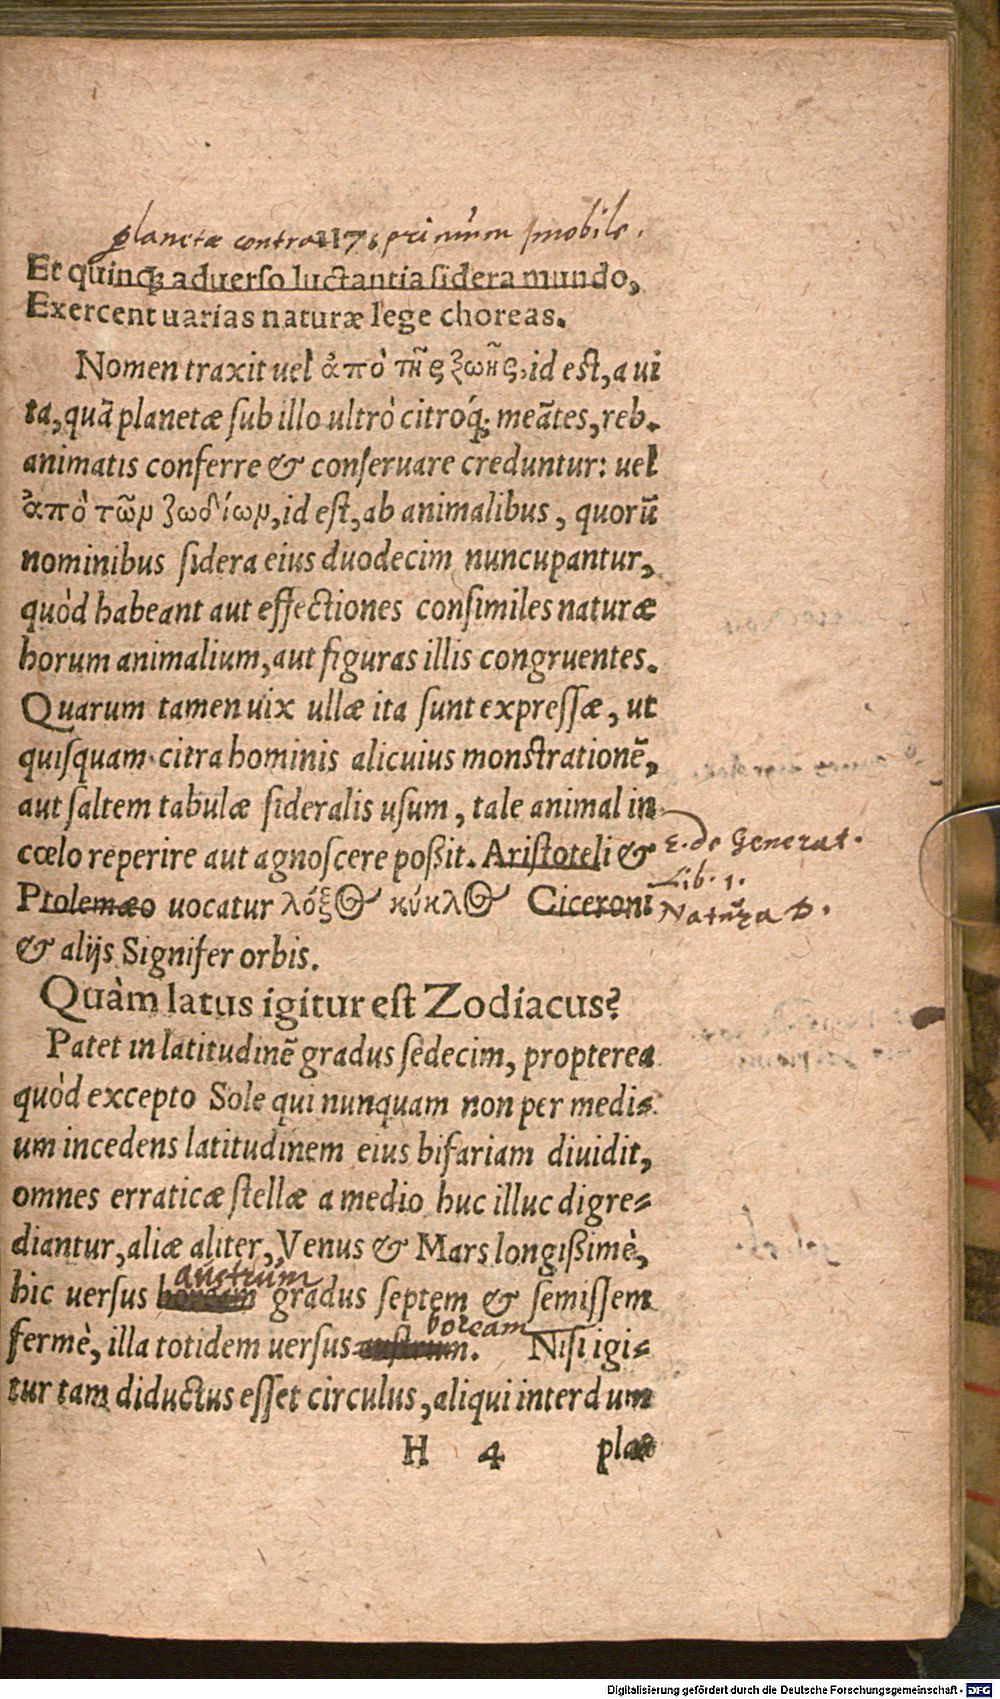 planetæ contra 117 primum mobile.
Et quinq; aduerso luctantia sidera mundo,
Exercent uarias naturæ lege choreas.
Nomen traxit uel ἀπὸ τῆς ζωῆς, id est, a ui
ta, quã planetæ sub illo ultrò citróq́; meãtes, reb.
animatis conferre & conseruare creduntur: uel
ἀπὸ τῶν ζωδίων, id est, ab animalibus, quorũ
nominibus sidera eius duodecim nuncupantur,
quòd habeant aut effectiones consimiles naturæ
horum animalium, aut figuras illis congruentes.
Quarum tamen uix ullæ ita sunt expressæ, ut
quisquam citra hominis alicuius monstrationẽ,
aut saltem tabulæ sideralis usum, tale animal in
cœlo reperire aut agnoscere poßit. Aristoteli &
2. de Generat.
Lib. 1.
Ptolemæo uocatur λόξος κύκλος Ciceroni
Natura D.
& alijs Signifer orbis.
Quàm latus igitur est Zodiacus?
Patet in latitudinẽ gradus sedecim, propterea
quòd excepto Sole qui nunquam non per medi=
um incedens latitudinem eius bifariam diuidit,
omnes erraticæ stellæ a medio huc illuc digre=
diantur, aliæ aliter, Venus & Mars longißimè,
austrum
hic uersus boream gradus septem & semissem
boream
fermè, illa totidem uersus austrum. Nisi igi=
tur tam diductus esset circulus, aliqui interdum
H 4 plae
Digitalisierung gefördert durch die Deutsche Forschungsgemeinschaft - DFG